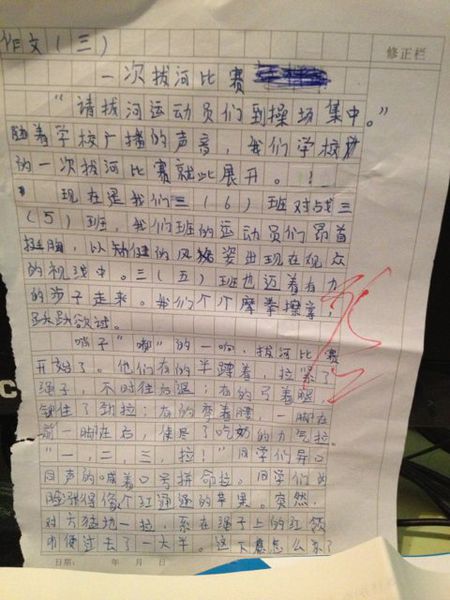 作文(三)
修正栏
一次拔河比赛
“请拔河运动员们到操场集中。”
随着学校广播的声音，我们学校
的一次拔河比赛就此展开。
现在是我们三(6)班对战三
(5)班，我们班的运动员们昂首
挺胸，以矫健的风姿出现在观众
的视线中。三(五)班也迈着有力
的步子走来。我们个个摩拳擦掌，
跃跃欲试。
哨子“嘟”的一响，拔河比赛
开始了。他们有的半蹲着，拉紧了
绳子，不时往后退；有的弓着腿
住了劲拉；有的弯着腰，一脚在
前一脚在后，使尽了吃奶的力气拉
“一，二，三，拉！”同学们异口
同声的喊着口号拼命拉。同学们的
脸涨得像个红通通的苹果。突然，
对方猛地一拉，系在绳子上的红领
巾便过去了一大半。这下怎么办
日期: 年 月 日